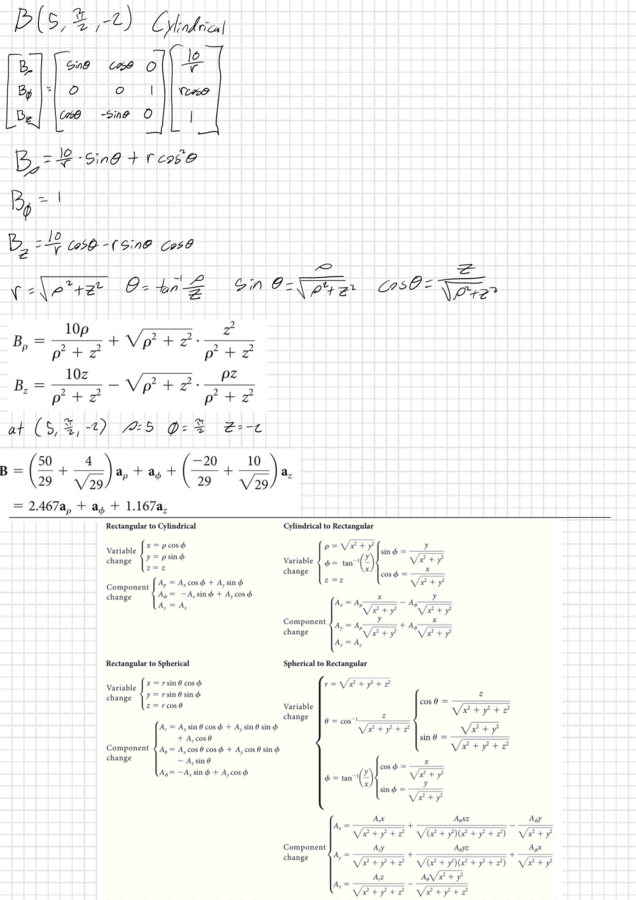 B(5, π/2, -2) Cylindrical
[Bρ Bϕ Bz] = [sinθ cosθ 0; 0 0 1; cosθ -sinθ 0] [10/r; rcosθ; 1]
Bρ = 10/r · sinθ + r cos²θ
Bϕ = 1
Bz = 10/r cosθ - r sinθ cosθ
r = √(ρ²+z²) θ = tan⁻¹ ρ/z sin θ = ρ/√(ρ²+z²) cosθ = z/√(ρ²+z²)
Bρ = 10ρ/(ρ² + z²) + √(ρ² + z²) · z²/(ρ² + z²)
Bz = 10z/(ρ² + z²) − √(ρ² + z²) · ρz/(ρ² + z²)
at (5, π/2, -2) ρ=5 ϕ=π/2 z=-2
B = (50/29 + 4/√29) aρ + aϕ + (−20/29 + 10/√29) az
= 2.467aρ + aϕ + 1.167az
Rectangular to Cylindrical
Variable change { x = ρ cos ϕ
y = ρ sin ϕ
z = z
Component change { Aρ = Ax cos ϕ + Ay sin ϕ
Aϕ = −Ax sin ϕ + Ay cos ϕ
Az = Az
Cylindrical to Rectangular
Variable change { ρ = √(x² + y²)
ϕ = tan⁻¹(y/x) { sin ϕ = y/√(x² + y²)
cos ϕ = x/√(x² + y²)
z = z
Component change { Ax = Aρ x/√(x² + y²) − Aϕ y/√(x² + y²)
Ay = Aρ y/√(x² + y²) + Aϕ x/√(x² + y²)
Az = Az
Rectangular to Spherical
Variable change { x = r sin θ cos ϕ
y = r sin θ sin ϕ
z = r cos θ
Component change { Ar = Ax sin θ cos ϕ + Ay sin θ sin ϕ
+ Az cos θ
Aθ = Ax cos θ cos ϕ + Ay cos θ sin ϕ
− Az sin θ
Aϕ = −Ax sin ϕ + Ay cos ϕ
Spherical to Rectangular
Variable change { r = √(x² + y² + z²)
θ = cos⁻¹ z/√(x² + y² + z²) { cos θ = z/√(x² + y² + z²)
sin θ = √(x² + y²)/√(x² + y² + z²)
ϕ = tan⁻¹(y/x) { cos ϕ = x/√(x² + y²)
sin ϕ = y/√(x² + y²)
Component change { Ax = Arx/√(x² + y² + z²) + Aθxz/√((x² + y²)(x² + y² + z²)) − Aϕy/√(x² + y²)
Ay = Ary/√(x² + y² + z²) + Aθyz/√((x² + y²)(x² + y² + z²)) + Aϕx/√(x² + y²)
Az = Arz/√(x² + y² + z²) − Aθ√(x² + y²)/√(x² + y² + z²)